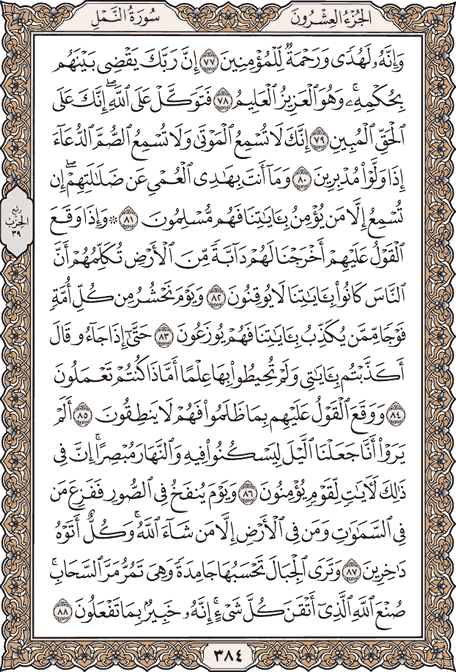 الجزء العشرون
سورة النمل
وَإِنَّهُۥ لَهُدًى وَرَحْمَةٌ لِّلْمُؤْمِنِينَ ٧٧ إِنَّ رَبَّكَ يَقْضِى بَيْنَهُم
بِحُكْمِهِۦ وَهُوَ ٱلْعَزِيزُ ٱلْعَلِيمُ ٧٨ فَتَوَكَّلْ عَلَى ٱللَّهِ ۖ إِنَّكَ عَلَى
ٱلْحَقِّ ٱلْمُبِينِ ٧٩ إِنَّكَ لَا تُسْمِعُ ٱلْمَوْتَىٰ وَلَا تُسْمِعُ ٱلصُّمَّ ٱلدُّعَآءَ
إِذَا وَلَّوْا۟ مُدْبِرِينَ ٨٠ وَمَآ أَنتَ بِهَـٰدِى ٱلْعُمْىِ عَن ضَلَـٰلَتِهِمْ ۖ إِن
تُسْمِعُ إِلَّا مَن يُؤْمِنُ بِـَٔايَـٰتِنَا فَهُم مُّسْلِمُونَ ٨١ ۞ وَإِذَا وَقَعَ
ٱلْقَوْلُ عَلَيْهِمْ أَخْرَجْنَا لَهُمْ دَآبَّةً مِّنَ ٱلْأَرْضِ تُكَلِّمُهُمْ أَنَّ
ٱلنَّاسَ كَانُوا۟ بِـَٔايَـٰتِنَا لَا يُوقِنُونَ ٨٢ وَيَوْمَ نَحْشُرُ مِن كُلِّ أُمَّةٍ
فَوْجًا مِّمَّن يُكَذِّبُ بِـَٔايَـٰتِنَا فَهُمْ يُوزَعُونَ ٨٣ حَتَّىٰٓ إِذَا جَآءُو قَالَ
أَكَذَّبْتُم بِـَٔايَـٰتِى وَلَمْ تُحِيطُوا۟ بِهَا عِلْمًا أَمَّاذَا كُنتُمْ تَعْمَلُونَ
٨٤ وَوَقَعَ ٱلْقَوْلُ عَلَيْهِم بِمَا ظَلَمُوا۟ فَهُمْ لَا يَنطِقُونَ ٨٥ أَلَمْ
يَرَوْا۟ أَنَّا جَعَلْنَا ٱلَّيْلَ لِيَسْكُنُوا۟ فِيهِ وَٱلنَّهَارَ مُبْصِرًا ۚ إِنَّ فِى
ذَٰلِكَ لَـَٔايَـٰتٍ لِّقَوْمٍ يُؤْمِنُونَ ٨٦ وَيَوْمَ يُنفَخُ فِى ٱلصُّورِ فَفَزِعَ مَن
فِى ٱلسَّمَـٰوَٰتِ وَمَن فِى ٱلْأَرْضِ إِلَّا مَن شَآءَ ٱللَّهُ ۚ وَكُلٌّ أَتَوْهُ
دَٰخِرِينَ ٨٧ وَتَرَى ٱلْجِبَالَ تَحْسَبُهَا جَامِدَةً وَهِىَ تَمُرُّ مَرَّ ٱلسَّحَابِ ۚ
صُنْعَ ٱللَّهِ ٱلَّذِىٓ أَتْقَنَ كُلَّ شَىْءٍ ۚ إِنَّهُۥ خَبِيرٌۢ بِمَا تَفْعَلُونَ ٨٨
ربع
الحزب
٣٩
٣٨٤